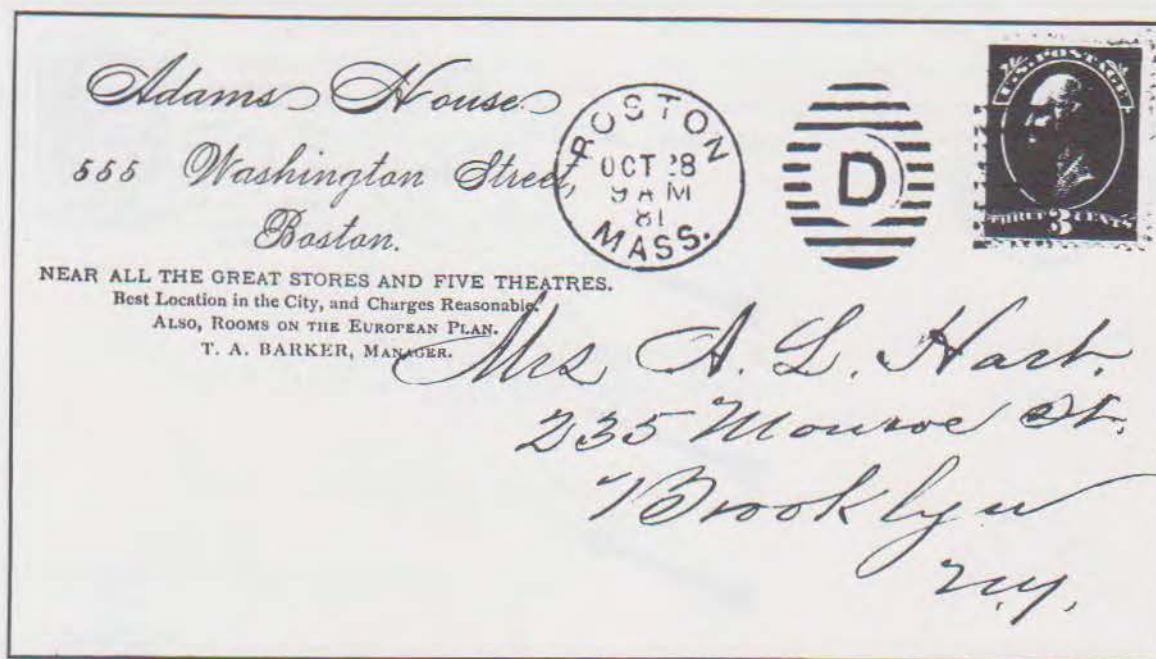 Adams House.
555 Washington Street,
Boston.
NEAR ALL THE GREAT STORES AND FIVE THEATRES.
Best Location in the City, and Charges Reasonable.
ALSO, ROOMS ON THE EUROPEAN PLAN.
T. A. BARKER, MANAGER.
BOSTON
OCT 28
9 AM
81
MASS.
D
U.S. POSTAGE
THREE 3 CENTS
Mrs A. L. Hart.
235 Monroe St.
Brooklyn
N.Y.